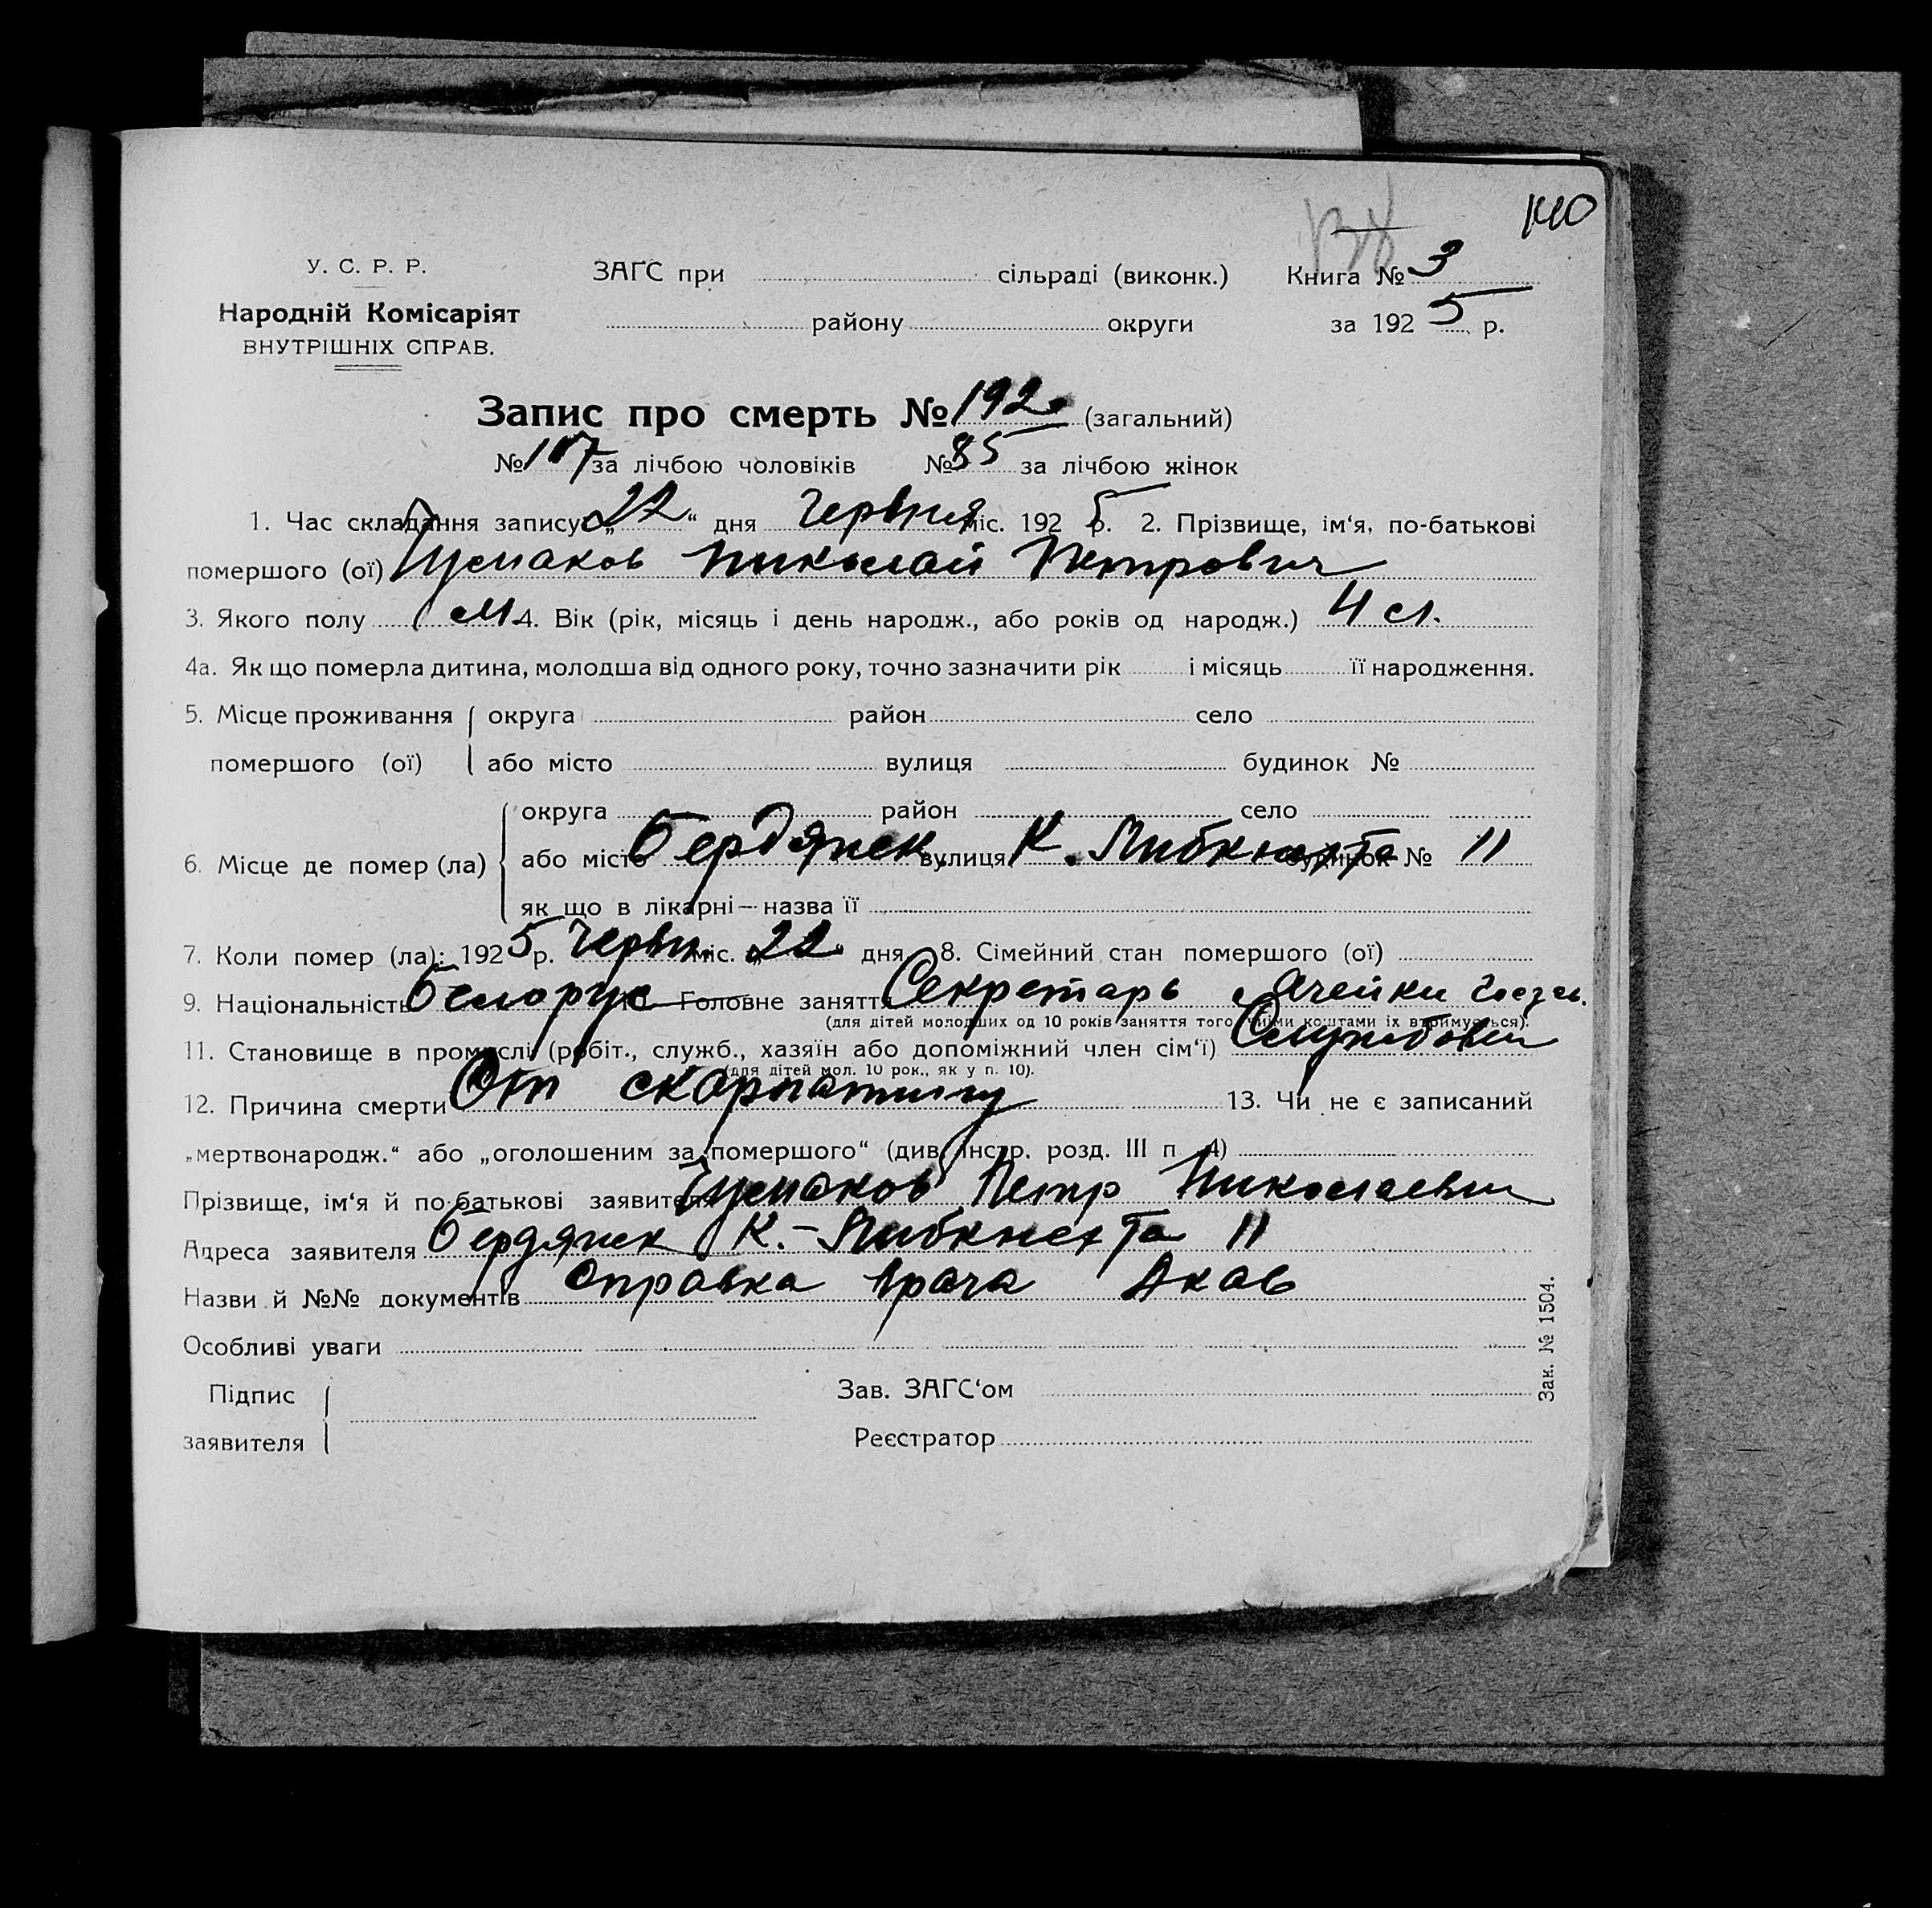 140
У. С. Р. Р.
Народній Комісаріят
ВНУТРІШНІХ СПРАВ.
ЗАГС при сільраді (виконк.) Книга № 3
району округи за 1925 р.
Запис про смерть № 192 (загальний)
№ 107 за лічбою чоловіків № 85 за лічбою жінок
1. Час складання запису „22“ дня Червня міс. 1925 р. 2. Прізвище, ім‘я, по-батькові
помершого (ої) Николай Петрович
3. Якого полу м 4. Вік (рік, місяць і день народж., або років од народж.) 4
4а. Як що померла дитина, молодша від одного року, точно зазначити рік і місяць її народження.
5. Місце проживання округа район село
помершого (ої) або місто вулиця будинок №
округа район село
6. Місце де помер (ла) або місто Бердянск вулиця К. Либкнехта будинок № 11
як що в лікарні — назва її
7. Коли помер (ла): 1925 р. Червн. міс. „22 дня 8. Сімейний стан помершого (ої)
9. Національність белорус Головне заняття Секретарь Ячейки
(для дітей молодших од 10 років заняття того, чиїми коштами їх втримується).
11. Становище в промислі (робіт., служб., хазяїн або допоміжний член сім‘ї)
(для дітей мол. 10 рок., як у п. 10).
12. Причина смерти От скарлатины 13. Чи не є записаний
„мертвонародж.“ або „оголошеним за помершого“ (див. Інстр. розд. III п 4)
Прізвище, ім‘я й по-батькові заявителя Петр Николаевич
Адреса заявителя Бердянск К.-Либкнехта 11
Назви й №№ документів Справка врача
Особливі уваги
Підпис Зав. ЗАГС‘ом
заявителя Реєстратор
Зак. № 1504.